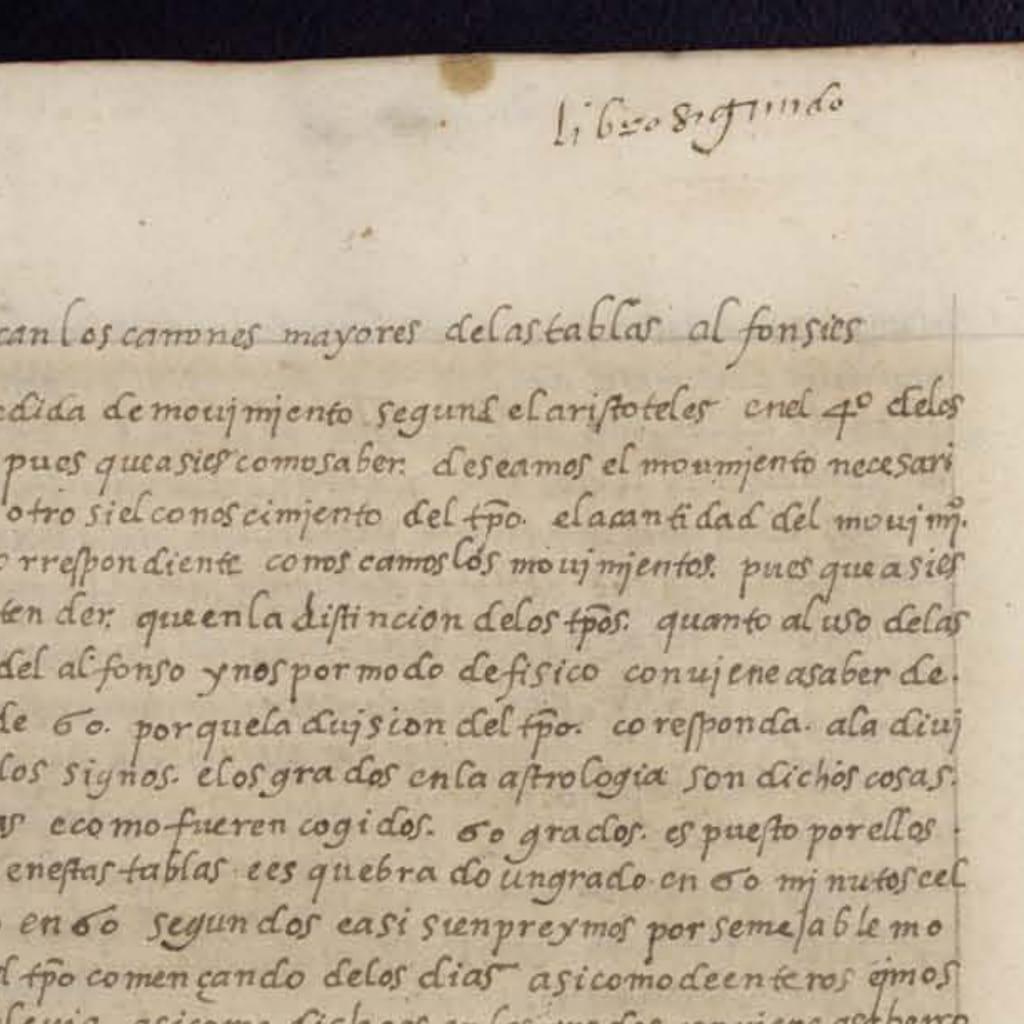 libro segundo
can los canones mayores delas tablas alfonsies
edida de moujmjento segund el aristoteles enel 4º delos
pues que asi es como saber. deseamos el moujmjento necesari
otro si el conoscimjento del tp̄o. e la cantidad del moujmjº.
orrespondiente conoscamos los moujmjentos. pues que asi es
tender. que en la distincion delos tp̄os. quanto al uso delas
del alfonso y nos por modo de fisico convjene a saber de.
de 60. por que la dujsion del tp̄o. coresponda. ala divj
los signos. e los grados en la astrologia son dichos cosas.
as e como fueren cogidos. 60 grados. es puesto por ellos.
en estas tablas e es quebrado un grado en 60 mjnutos e el
en 60 segundos e asi sienpre ymos por semejable mo
l tp̄o començando delos dias asi como de enteros qmos